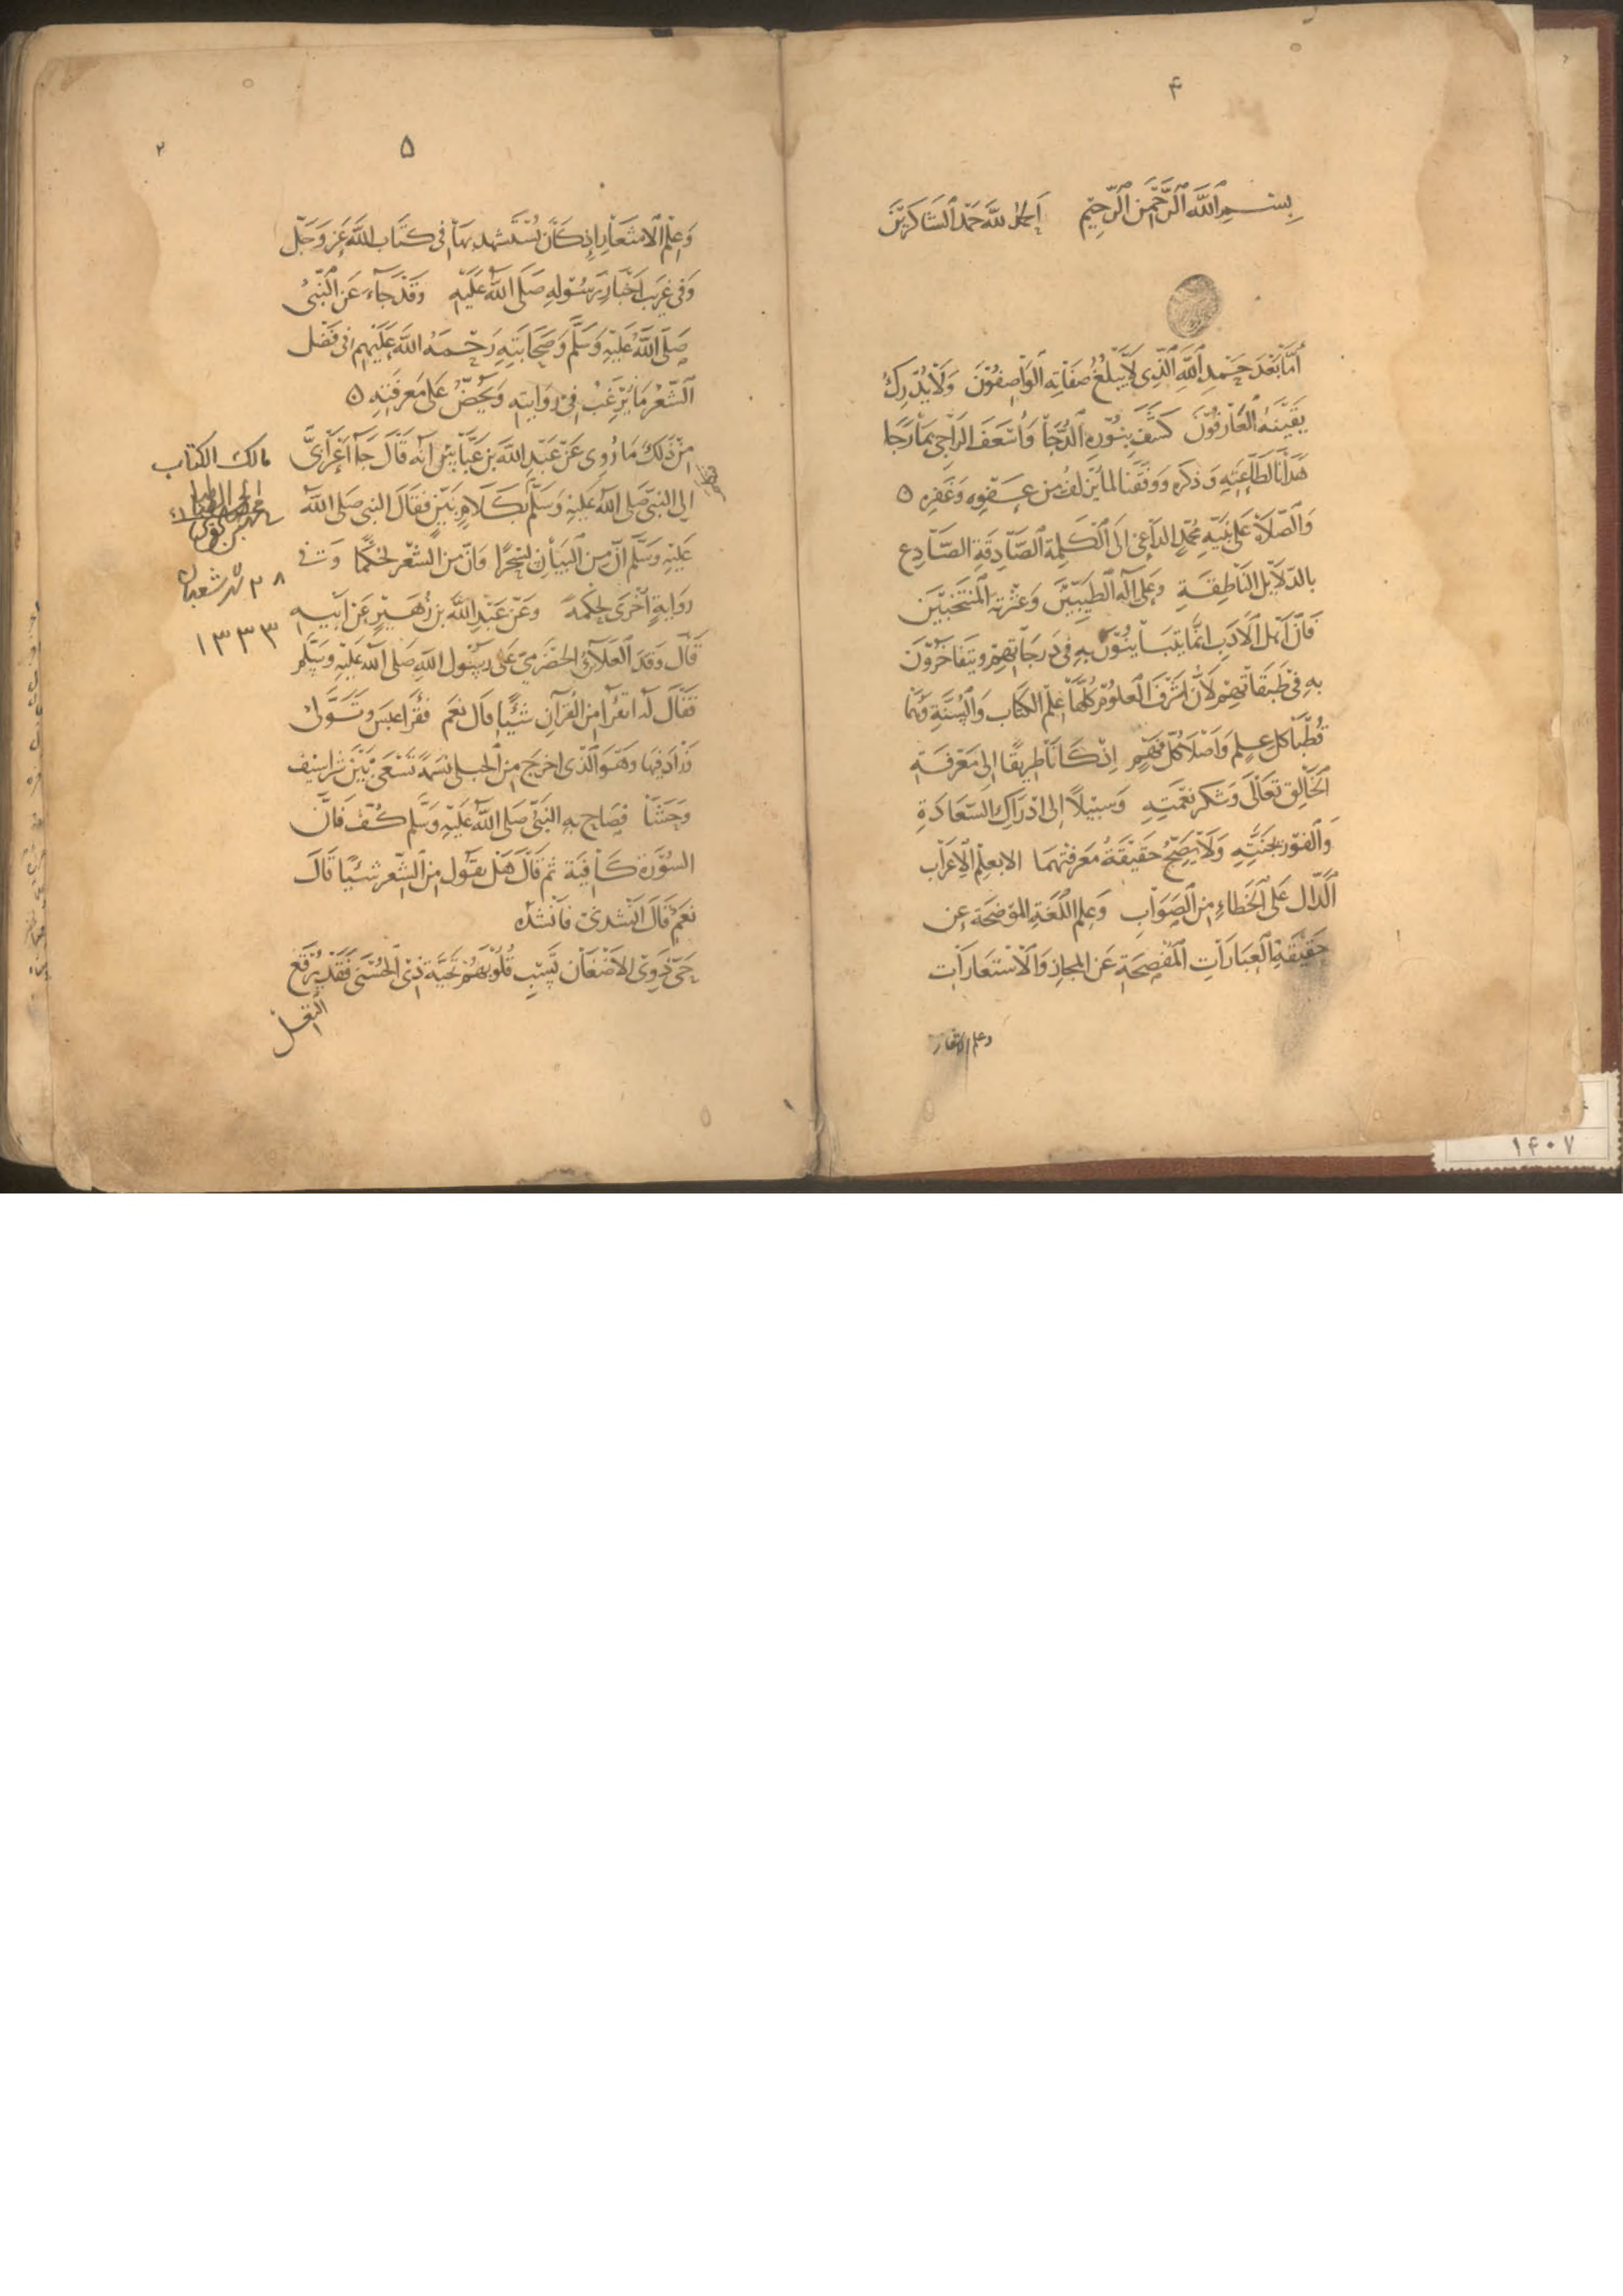 ۴
بِسْمِ ٱللَّهِ ٱلرَّحْمٰنِ ٱلرَّحِيْمِ اَلْحَمْدُ لِلّٰهِ حَمْدَ ٱلشَّاكِرِيْنَ
أَمَّا بَعْدَ حَمْدِ ٱللَّهِ ٱلَّذِى لَا يَبْلُغُ صِفَاتِهِ ٱلْوَاصِفُوْنَ وَلَا يُدْرِكُ
يَقِيْنَهُ ٱلْعَارِفُوْنَ كَشَفَ بِنُوْرِهِ ٱلدُّجَا وَأَسْعَفَ الرَّاجِي بِمَا رَجَا
هَدَانَا لِطَاعَتِهِ وَذِكْرِهِ وَوَفَّقَنَا لِمَا يُزْلِفُ مِن عَفْوِهِ وَغَفْرِهِ ٥
وَٱلصَّلَاةُ عَلَى نَبِيِّهِ مُحَمَّدٍ الدَّاعِي اِلَى ٱلْكَلِمَةِ ٱلصَّادِقَةِ الصَّادِعِ
بِالدَّلَايِلِ النَّاطِقَةِ وَعَلَى آلِهِ ٱلطَّيِّبِيْنَ وَعِتْرَتِهِ ٱلْمُنْتَخَبِيْنَ
فَاِنَّ أَهْلَ ٱلْأَدَبِ اِنَّمَا يَتَبَايَنُوْنَ بِهِ فِي دَرَجَاتِهِمْ وَيَتَفَاخَرُوْنَ
بِهِ فِيْ طَبَقَاتِهِمْ لِأَنَّ أَشْرَفَ ٱلْعُلُوْمِ كُلِّهَا عِلْمُ الكِتَابِ وَٱلسُّنَّةِ وَهُمَا
قُطْبَا كُلِّ عِلْمٍ وَأَصْلَا كُلِّ فَهْمٍ اِذْ كَانَا طَرِيْقًا اِلَى مَعْرِفَةِ
ٱلْخَالِقِ تَعَالَى وَشُكْرِ نِعْمَتِهِ وَسَبِيْلًا اِلَى اِدْرَاكِ السَّعَادَةِ
وَٱلْفَوْزِ بِجَنَّتِهِ وَلَا يَصِحُّ حَقِيْقَةُ مَعْرِفَتِهِمَا اِلَّا بِعِلْمِ ٱلْاِعْرَابِ
ٱلدَّالِّ عَلَى ٱلْخَطَاءِ مِنَ ٱلصَّوَابِ وَعِلْمِ اللُّغَةِ المُوْضِحَةِ عَنِ
حَقِيْقَةِ ٱلْعِبَارَاتِ ٱلْمُفْصِحَةِ عَنِ المَجَازِ وَٱلْاِسْتَعَارَاتِ
وعلم الاشعار
۵
۲
وَعِلْمُ ٱلْاَشْعَارِ اِذْ كَانَ يُسْتَشْهَدُ بِهَا فِي كِتَابِ اللَّهِ عَزَّ وَجَلَّ
وَفِي غَرِيْبِ اَخْبَارِ رَسُوْلِهِ صَلَّى اللَّهُ عَلَيْهِ وَقَدْ جَاءَ عَنِ ٱلنَّبِيِّ
صَلَّى ٱللَّهُ عَلَيْهِ وَسَلَّمَ وَصَحَابَتِهِ رَحْمَةُ اللَّهِ عَلَيْهِمْ فِى فَضْلِ
ٱلشِّعْرِ مَا يُرَغِّبُ فِيْ رِوَايَتِهِ وَيَحُضُّ عَلَى مَعْرِفَتِهِ ٥
مِنْ ذٰلِكَ مَا رُوِى عَنْ عَبْدِ اللَّهِ بْنِ عَبَّاسٍ أَنَّهُ قَالَ جَاءَ اَعْرَابِيٌّ
اِلَى النَّبِيِّ صَلَّى اللَّهُ عَلَيْهِ وَسَلَّمَ بِكَلَامٍ بَيِّنٍ فَقَالَ النَّبِيُّ صَلَّى اللَّهُ
عَلَيْهِ وَسَلَّمَ اِنَّ مِنَ ٱلْبَيَانِ لَسِحْرًا وَاِنَّ مِنَ الشِّعْرِ لَحُكْمًا وَفِي
رِوَايَةٍ أُخْرَى لَحِكْمَةً وَعَنْ عَبْدِ اللَّهِ بْنِ زُهَيْرٍ عَنْ اَبِيْهِ
قَالَ وَفَدَ ٱلْعَلَاءُ الحَضْرَمِيُّ عَلَى رَسُوْلِ اللَّهِ صَلَّى اللَّهُ عَلَيْهِ وَسَلَّمَ
فَقَالَ لَهُ اَتَقْرَأُ مِنَ الْقُرْآنِ شَيْئًا قَالَ نَعَمْ فَقَرَأَ عَبَسَ وَتَوَلَّى
وَزَادَ فِيْهَا وَهُوَ ٱلَّذِى اَخْرَجَ مِنَ ٱلْحُبْلَى نَسَمَةً تَسْعَى بَيْنَ شَرَاسِيْفَ
وَحَشًا فَصَاحَ بِهِ النَّبِيُّ صَلَّى اللَّهُ عَلَيْهِ وَسَلَّمَ كُفَّ فَاِنَّ
السُّوْرَةَ كَافِيَةٌ ثُمَّ قَالَ هَلْ تَقُوْلُ مِنَ ٱلشِّعْرِ شَيْئًا قَالَ
نَعَمْ قَالَ اَنْشِدْنِيْ فَأَنْشَدَهُ
حَيِّ ذَوِى الاَضْغَانِ تَسْبِ قُلُوْبَهُمْ تَحِيَّةَ ذِى ٱلْحُسْنَى فَقَدْ يُرْقَعُ
النَّغَلْ
مالك الكتاب
۲۸ شهر شعبان
۱۳۳۳
۱۴۰۷